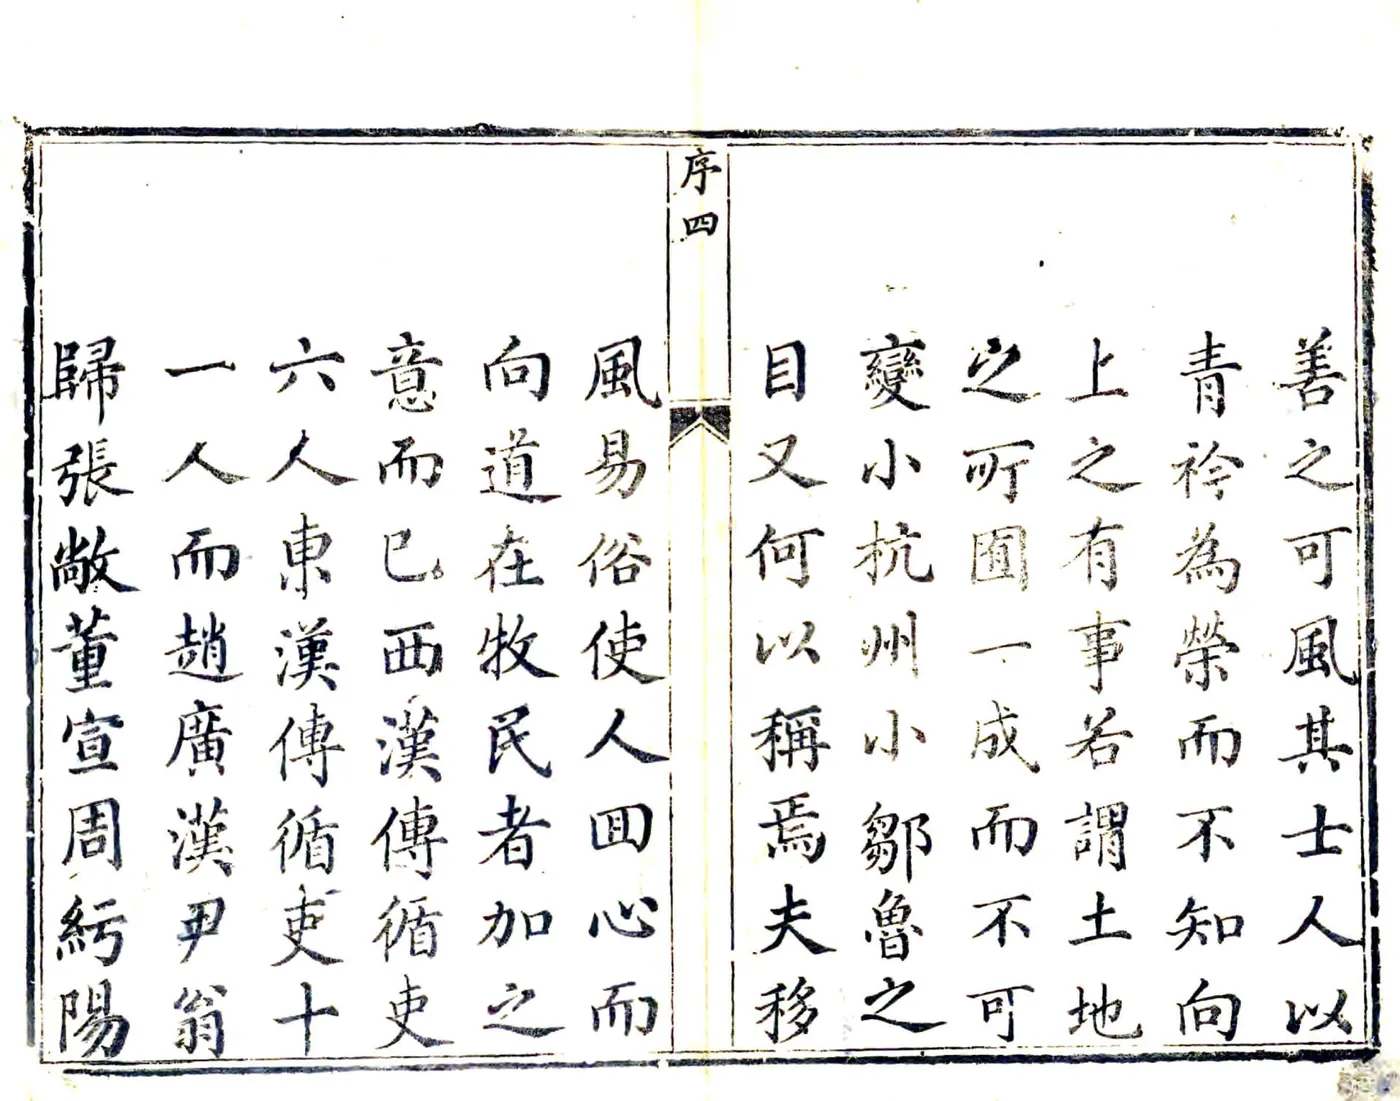 善之可風其士人以
青衿為榮而不知向
上之有事若謂土地
之所囿一成而不可
變小杭州小鄒魯之
目又何以稱焉夫移
序四
風易俗使人囬心而
向道在牧民者加之
意而已西漢傳循吏
六人東漢傳循吏十
一人而趙廣漢尹翁
歸張敞董宣周紆陽